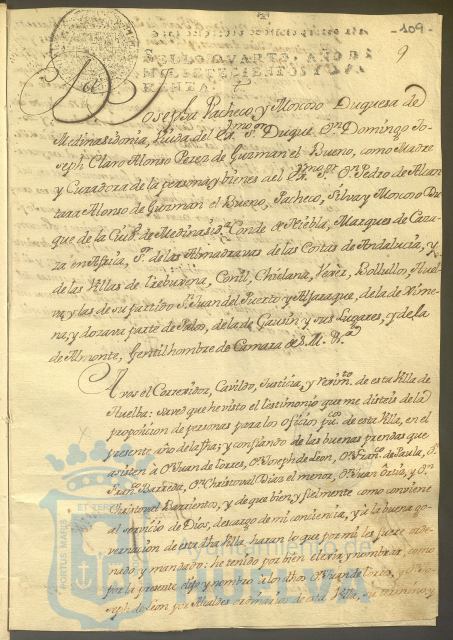 -109-
9
SELLO QVARTO,
Da Josepha Pacheco y Moscoso Duquesa de
Medinasidonia, Viuda del Exmo Sr Duque Dn Domingo Jo-
seph Claro Alonso Perez de Guzman el Bueno, como Madre
y Curadora de la persona y bienes del Exmo Sr Dn Pedro de Alcan
tara Alonso de Guzman el Bueno, Pacheco, Silva y Moscoso Du
que de la Ciud de Medinasida Conde de Niebla, Marques de Caza-
za en Africa, Sr de las Almadravas de las Costas de Andalucia, y
de las Villas de Trebuxena, Conil, Chiclana, Xerez, Bollullos, Huel
va, y las de su partido Sn Juan del Puerto y Aljaraque, de la de Ximé-
na, y dozava parte de Palos, de la de Gausin y sus Lugares, y de la
de Almonte, Gentilhombre de Camara de S. M. &a
A vos el Corregidor, Cavildo, Justicia, y Regimto de esta Villa de
Huelba: saved que he visto el testimonio que me disteis de la
proposicion de personas para los oficios pucos de esta Villa, en el
presente año de la fha; y confiando de las buenas prendas que
asisten à Dn Juan de Torres, Dn Joseph de Leon, Dn Franco de Paula, Dn
Franco Barreda, Dn Christoval Diaz el menor, Dn Juan Ortiz, y Dn
Christoval Barrientos, y de que bien, y fielmente como conviene
al servicio de Dios, descargo de mi conciencia, y à la buena go-
vernacion de esta dha Villa, haran lo que por mi les fuere orde
nado y mandado: he tenido por bien elexir y nombrar, como
por la presente elijo y nombro à los dhos Dn Juan de Torres, y Dn Jo-
seph de Leon por Alcaldes ordinarios de esta Villa, su termino, y
Ayuntamiento de
HUELVA
PORTUS MARIS
ET TERRAE